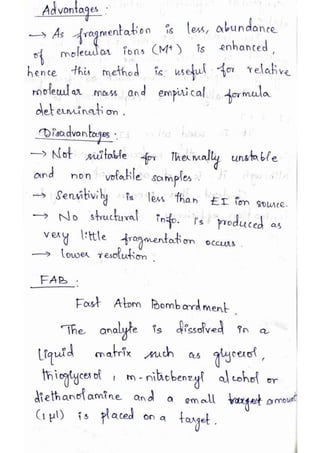 Advantages :
→ As fragmentation is less, abundance
of molecular ions (M⁺) is enhanced,
hence this method is useful for relative
molecular mass and empirical formula
determination.
Disadvantages :
→ Not suitable for thermally unstable
and non volatile samples
→ Sensitivity is less than EI ion source.
→ No structural info. is produced as
very little fragmentation occurs.
→ lower resolution.
FAB :
Fast Atom Bombardment.
The analyte is dissolved in a
liquid matrix such as glycerol,
thioglycerol, m-nitrobenzyl alcohol or
diethanolamine and a small amount
(1 μl) is placed on a target.